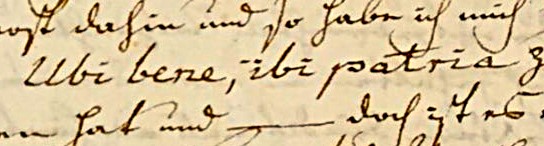 dahin und so habe ich mich
Ubi bene, ibi patria
hat und ——— doch ist es